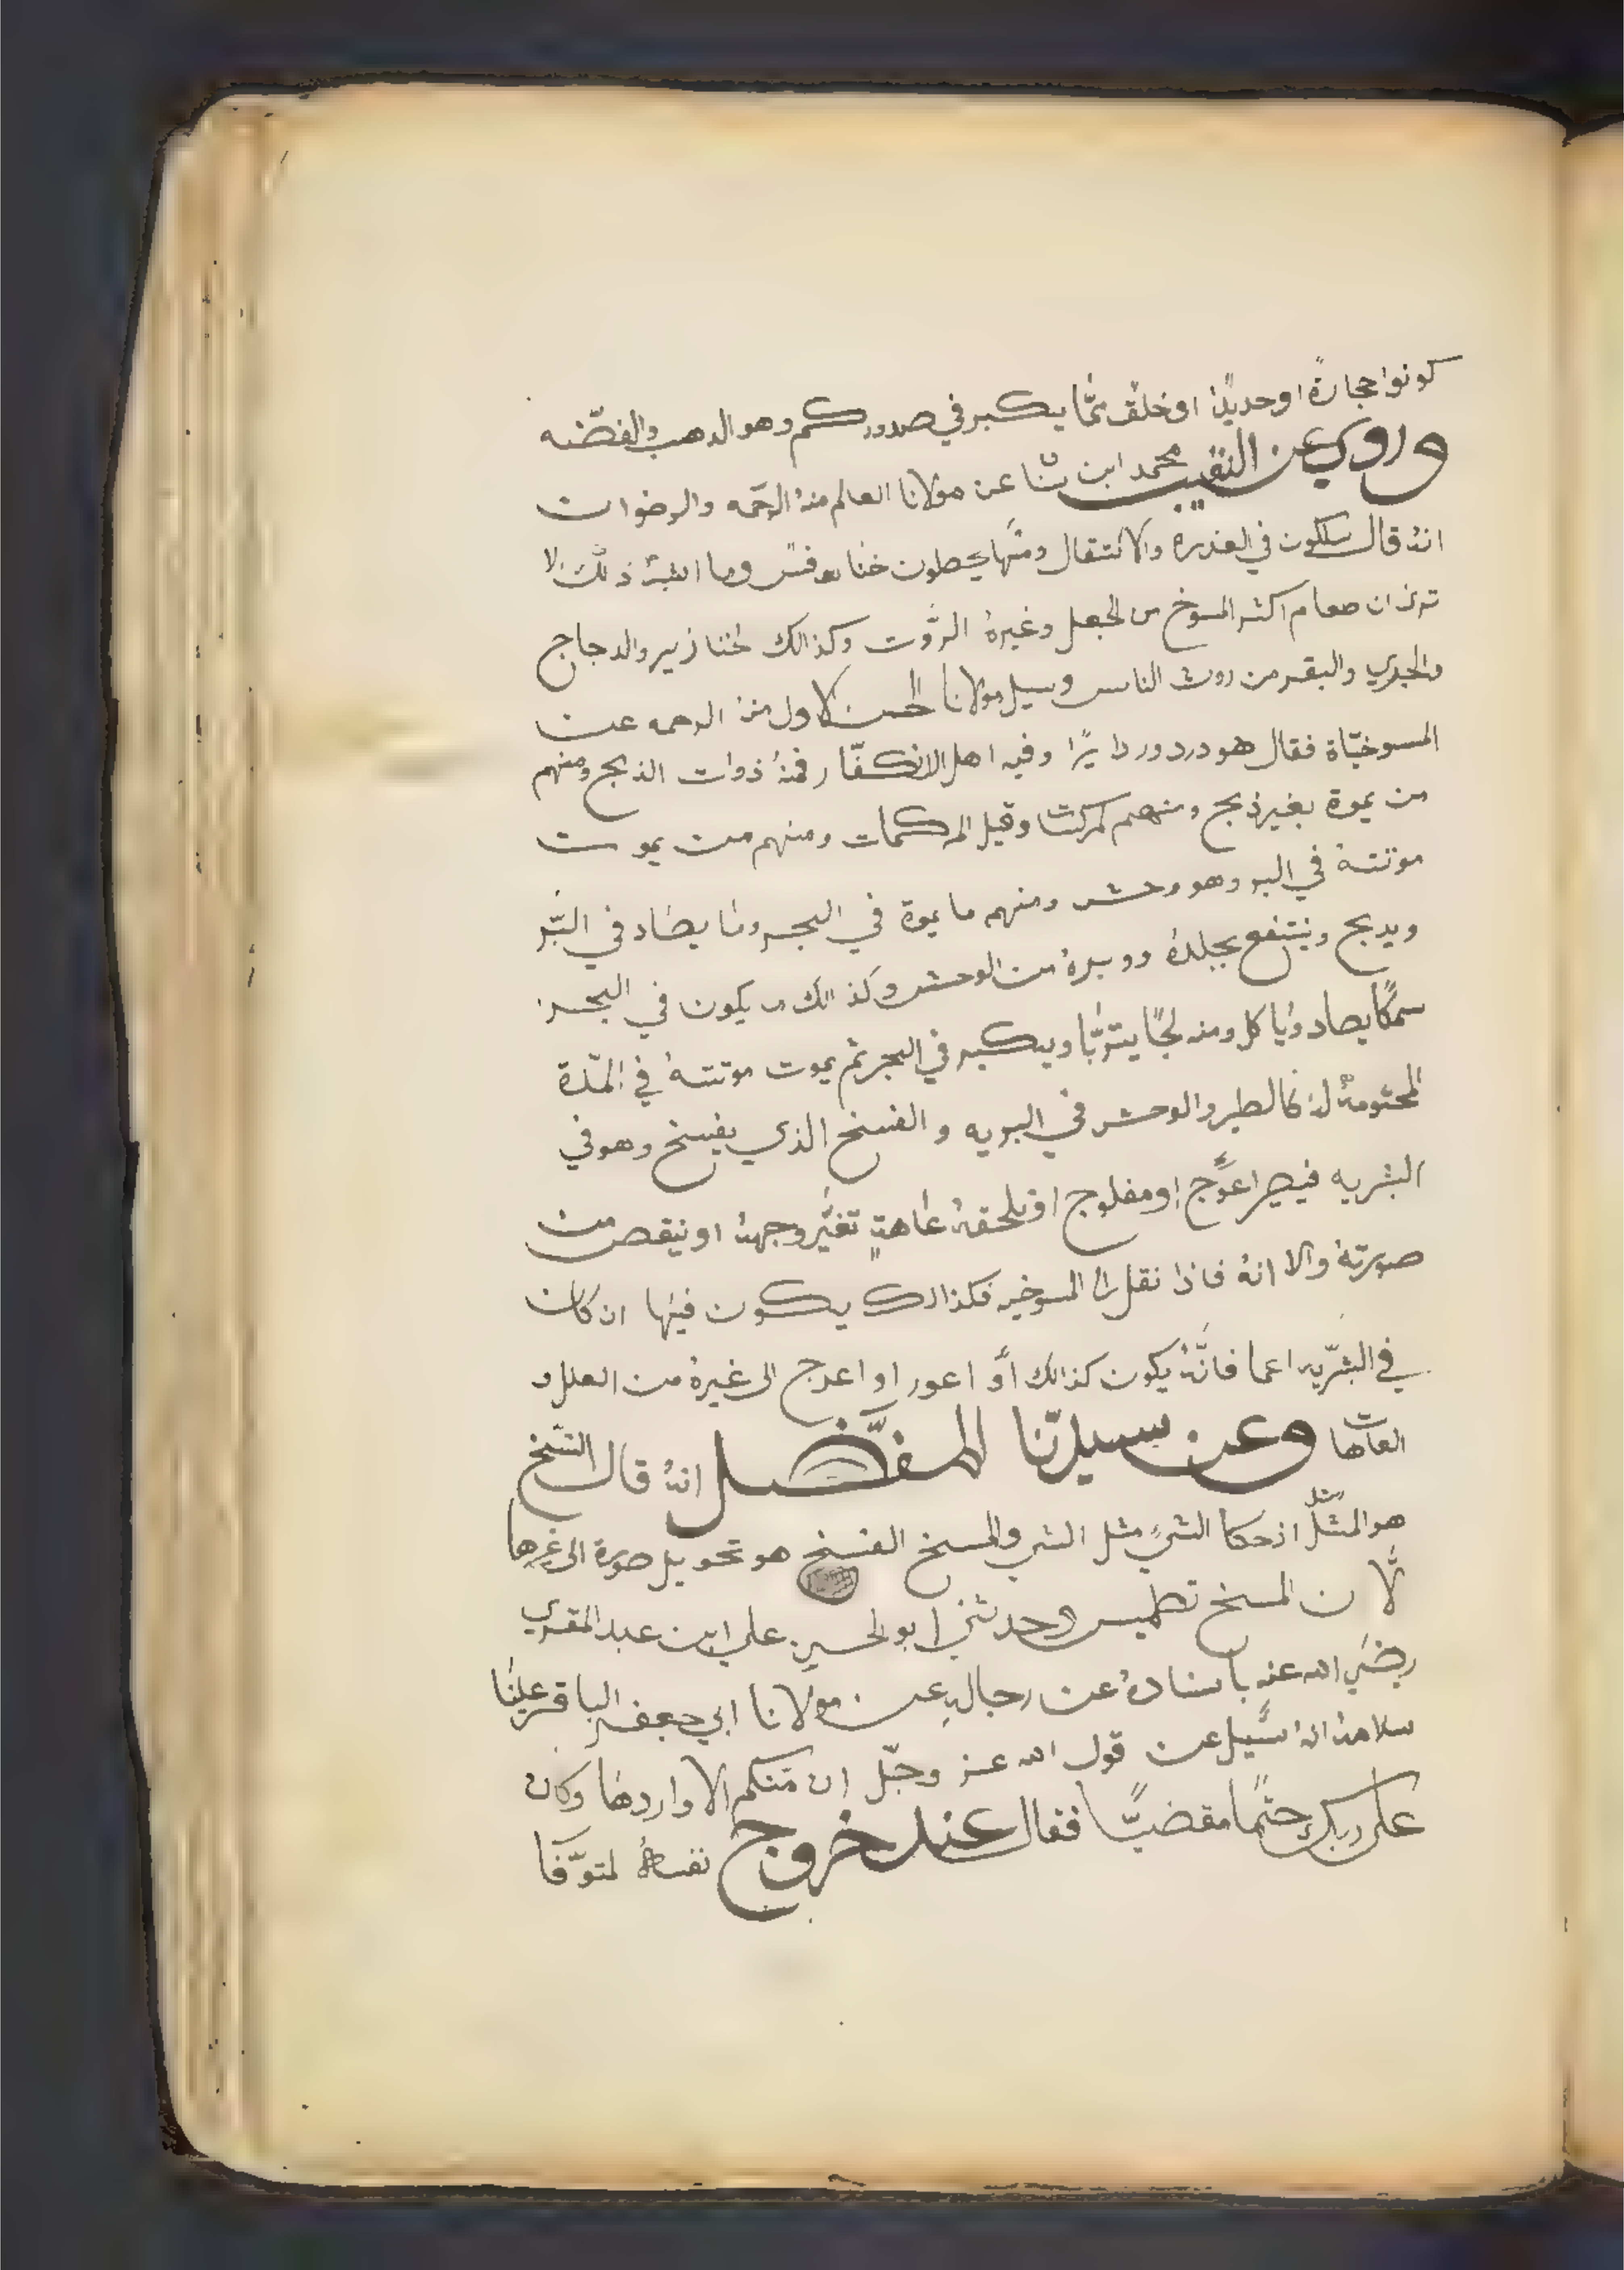 كونوا حجارةً او حديدًا او خلق ممّا يكبر في صدوركم وهو الدهب والفضّه
وروي عن النقيب محمد ابن سنا عن مولانا العالم منهُ الرحمه والرضوان
انهُ قال سلكون في العذره والا كتقال ومنها يجعلون خنافس وما اشبهُ ذلك الا
ترى ان طعام اكثر المسوخ من الجعل وغيرهُ الروت وكذالك الخنازير والدجاج
والجدي والبقر من روث الناس وسيل مولانا الحسن الاول منهُ الرحمه عن
المسوخيّاة فقال هو درد وردايرًا وفيه اهل الانكفّار فمنهُ ذوات الذبح ومنهم
من يموة بغير ذبح ومنهم كمركبتا وقيل المركمات ومنهم من يموت
موتتهُ في البر وهو وحش ومنهم ما يموة في البحر وما يصاد في البّر
ويدبح وينتفع بجلدهُ ووبرهُ من الوحش وكذالك ما يكون في البحر
سمكًا يصاد ويأكل ومنه لجًا يتربّا ويكبر في البحر ثم يموت موتتهُ في المدّة
المحتومهُ لهُ كالطير والوحش في البريه والفسخ الذي يفسخ وهو في
البشريه فيصير اعوّج او مفلوج او يلحقهُ عاهةٍ تغيّر وجههُ او ينقص من
صورتهُ والا انهُ فاذا نقل الى المسوخيه فكذالك يكون فيها ان كان
في البشرّيه اعما فانّهُ يكون كذالك أو اعور او اعرج الى غيرهُ من العلل و
العاهات وعن سيدنّا المفضّل انهُ قال النسخ
هو المثل اذ حكا الشيء مثل الشي والمسخ الفسخ هو تحويل صورة الى غيرها
لّان المسخ تطميس وحدثني ابو الحسين علي ابن عبد المقري
رضي الله عنه باسنادهُ عن رجالهِ عن مولانا ابي جعفر الباقر علينا
سلامهُ انهُ سئيل عن قول الله عز وجّل ان منكم الا واردها وكان
على ربك حتمًا مقضيًّا فقال عند خروج نفسهُ لمتوفّا